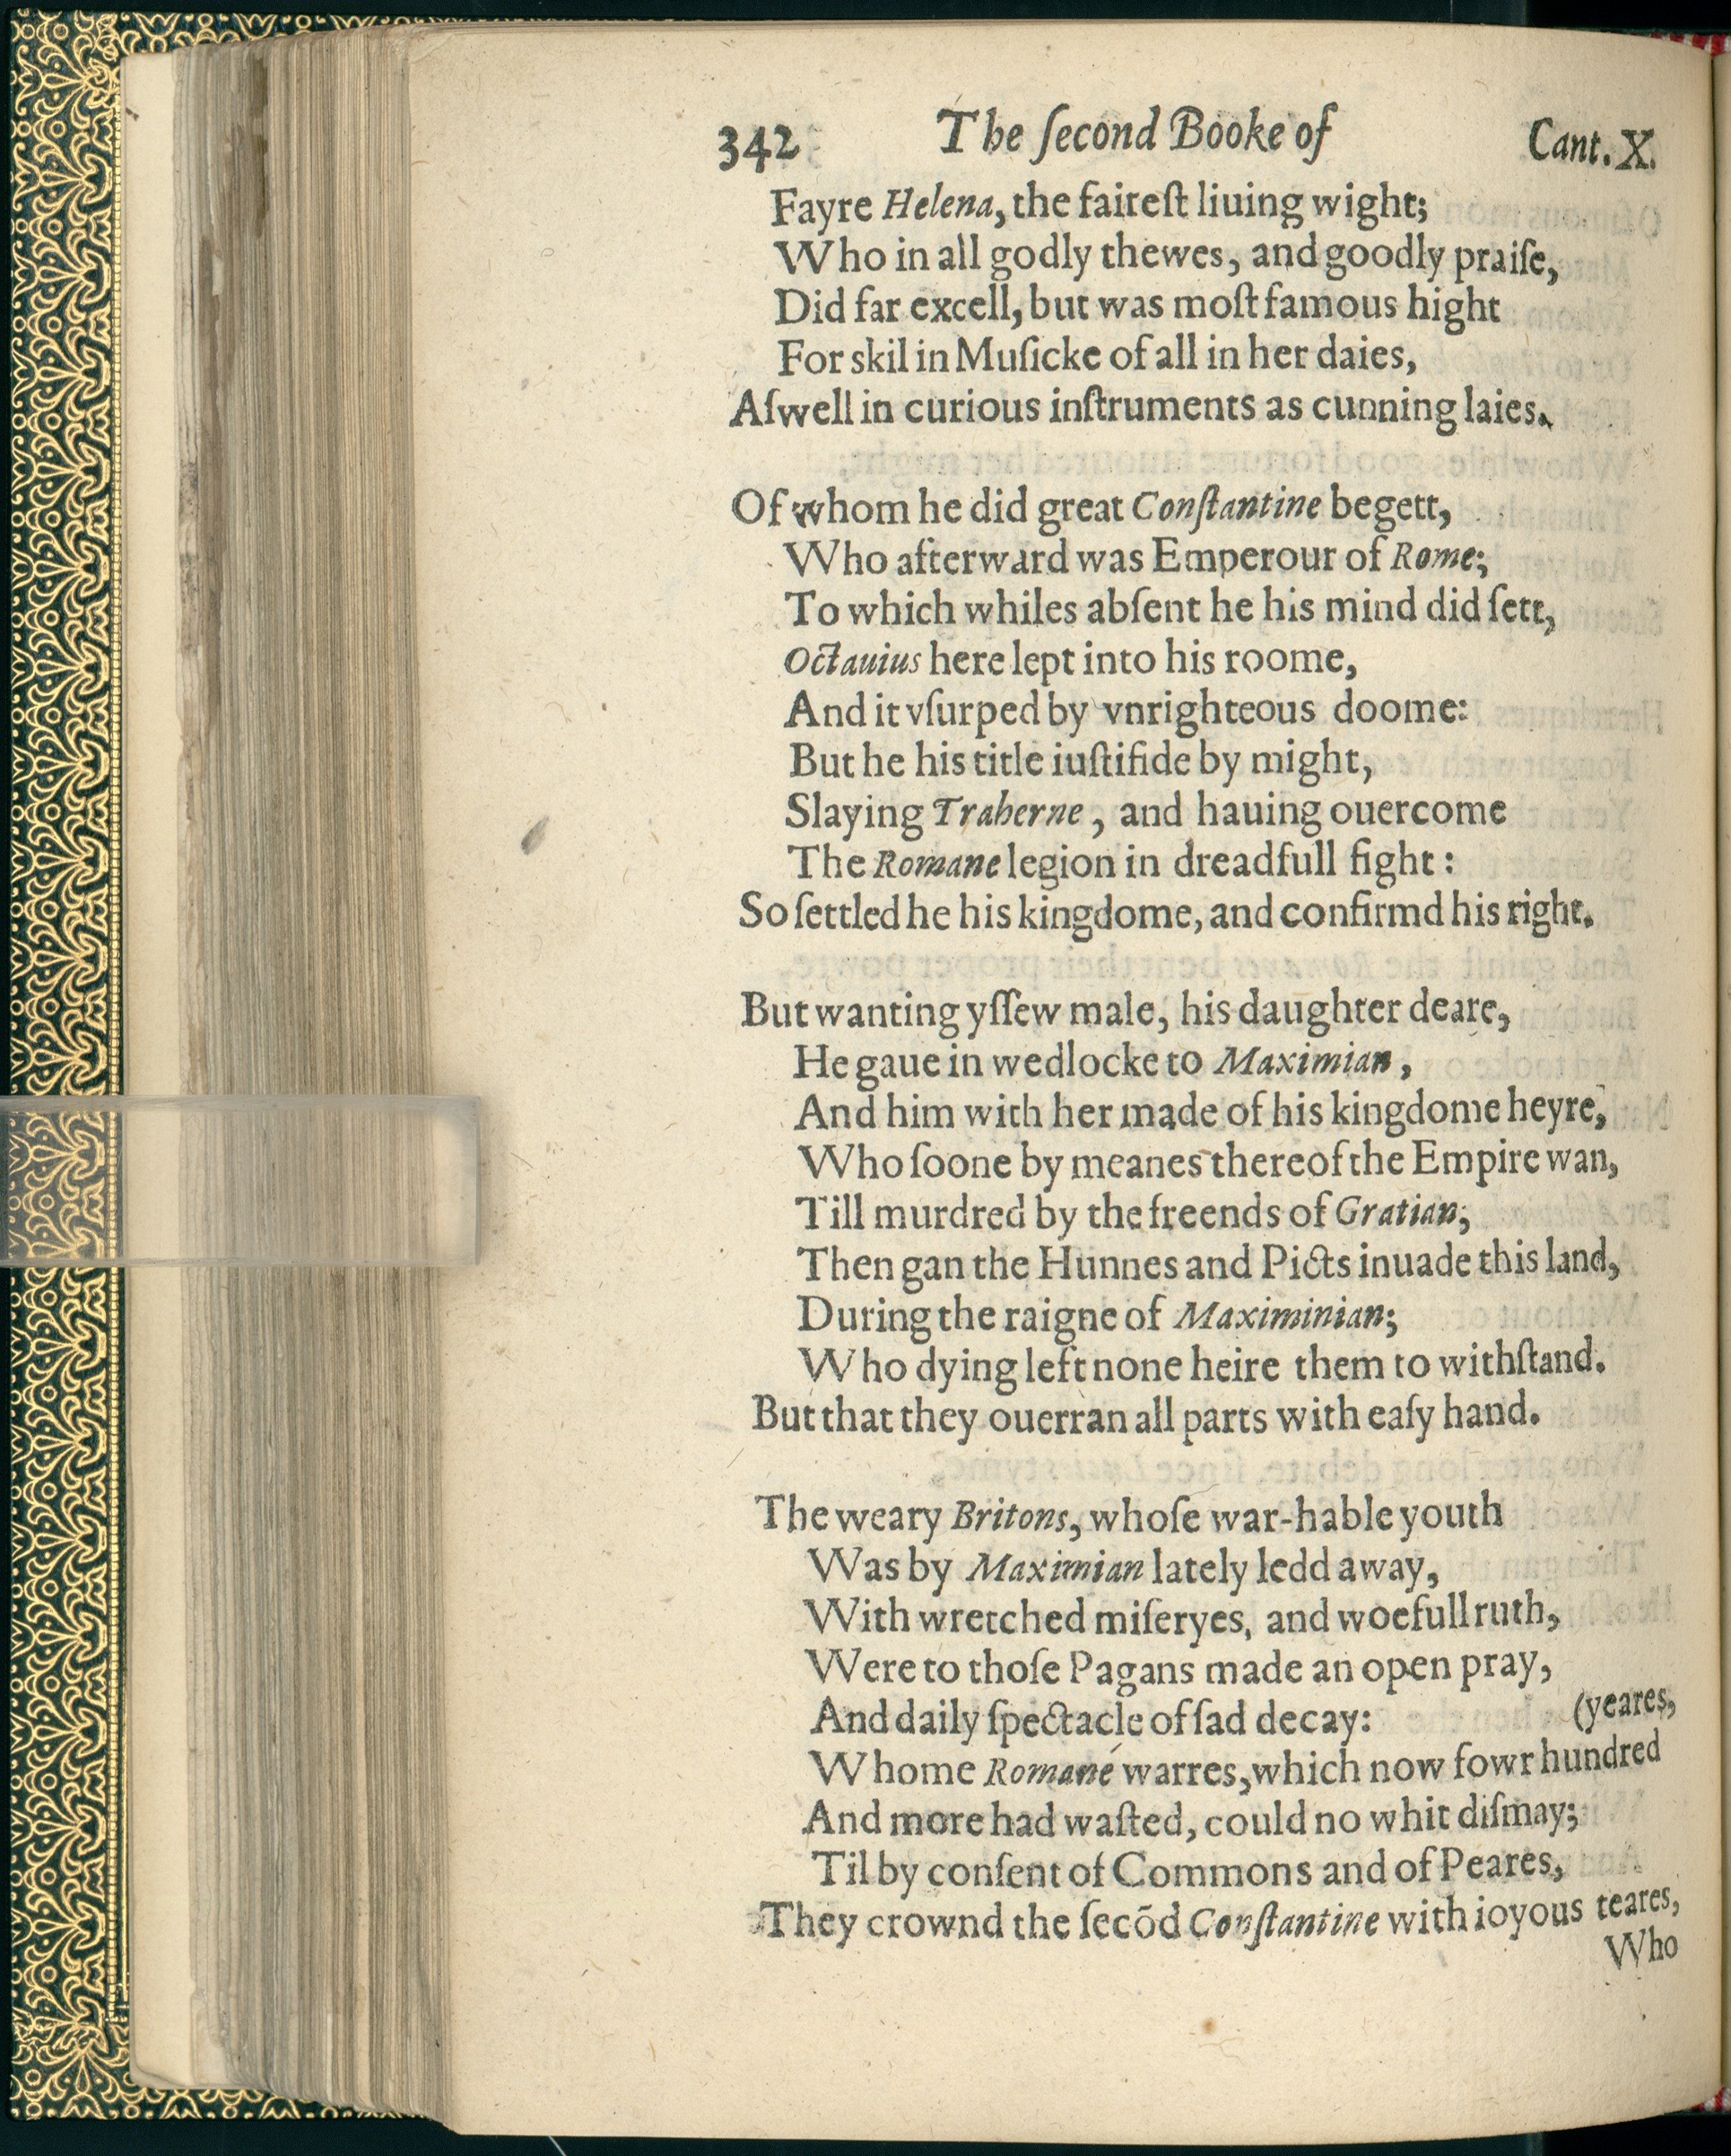 342 The ſecond Booke of Cant. X.
Fayre Helena, the faireſt liuing wight;
Who in all godly thewes, and goodly praiſe,
Did far excell, but was moſt famous hight
For skil in Muſicke of all in her daies,
Aſwell in curious inſtruments as cunning laies.
Of whom he did great Conſtantine begett,
Who afterward was Emperour of Rome;
To which whiles abſent he his mind did ſett,
Octauius here lept into his roome,
And it vſurped by vnrighteous doome:
But he his title iuſtifide by might,
Slaying Traherne, and hauing ouercome
The Romane legion in dreadfull fight:
So ſettled he his kingdome, and confirmd his right.
But wanting yſſew male, his daughter deare,
He gaue in wedlocke to Maximian,
And him with her made of his kingdome heyre,
Who ſoone by meanes thereof the Empire wan,
Till murdred by the freends of Gratian;
Then gan the Hunnes and Picts inuade this land,
During the raigne of Maximinian;
Who dying left none heire them to withſtand.
But that they ouerran all parts with eaſy hand.
The weary Britons, whoſe war-hable youth
Was by Maximian lately ledd away,
With wretched miſeryes, and woefull ruth,
Were to thoſe Pagans made an open pray,
And daily ſpectacle of ſad decay:
(yeares,
Whome Romane warres, which now fowr hundred
And more had waſted, could no whit diſmay;
Til by conſent of Commons and of Peares,
They crownd the ſecōd Conſtantine with ioyous teares,
Who